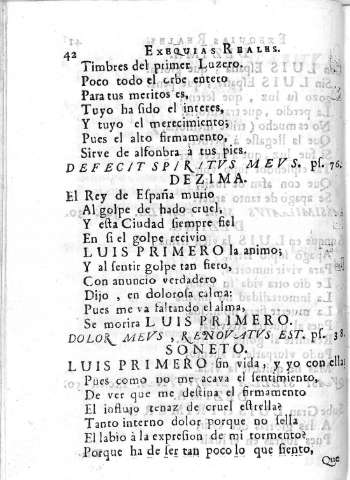 42 EXEQUIAS REALES.
Timbres del primer Luzero.
Poco todo el Orbe entero
Para tus meritos es,
Tuyo ha sido el interes,
Y tuyo el merecimiento;
Pues el alto firmamento,
Sirve de alfonbra à tus pies.
DEFECIT SPIRITVS MEVS. ps. 76.
DEZIMA.
El Rey de España murio
Al golpe de hado cruel,
Y esta Ciudad siempre fiel
En si el golpe recivio
LUIS PRIMERO la animo;
Y al sentir golpe tan fiero,
Con anuncio verdadero
Dijo, en dolorosa calma:
Pues me va faltando el alma,
Se morira LUIS PRIMERO.
DOLOR MEVS, RENOVATVS EST. ps. 38.
SONETO.
LUIS PRIMERO sin vida, y yo con ella!
Pues como no me acava el sentimiento,
De ver que me destina el firmamento
El influjo tenaz de cruel estrella?
Tanto interno dolor porque no sella
El labio à la expresion de mi tormento?
Porque ha de ser tan poco lo que siento,
Que